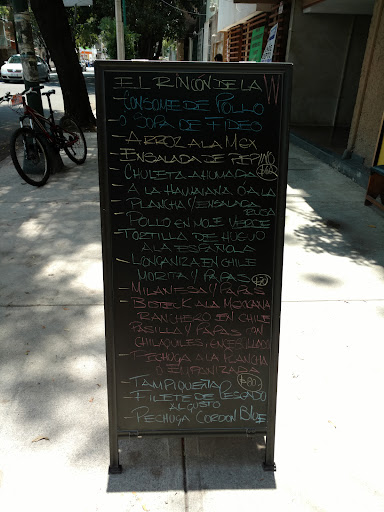 EL RINCÓN DE LA W
- CONSOME DE POLLO
O SOPA DE FIDEO
- ARROZ A LA MEX
- ENSALADA DE PEPINO
- CHULETA AHUMADA
A LA HAWAIANA O A LA
PLANCHA Y ENSALADA
RUSA
- POLLO EN MOLE VERDE
- TORTILLA DE HUEVO
A LA ESPAÑOLA
- LONGANIZA EN CHILE
MORITA Y PAPAS
- MILANESA Y PAPAS
- BISTECK A LA MEXICANA
RANCHERO EN CHILE
PASILLA Y PAPAS CON
CHILAQUILES, ENCEBOLLADO
- PECHUGA A LA PLANCHA
O EMPANIZADA
- TAMPIQUEÑA
- FILETE DE PESCADO
AL GUSTO
- PECHUGA CORDON BLUE